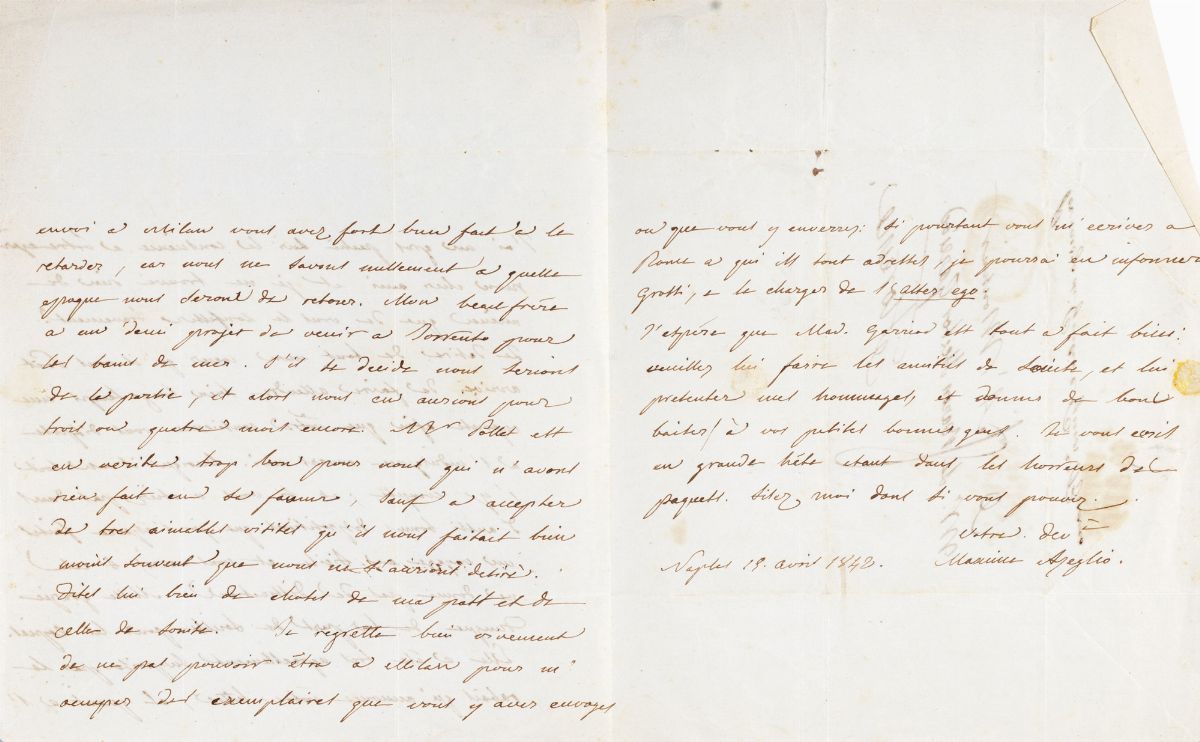 envoi a Milan vous avez fort bien fait a le
retarder, car nous ne savons nullement a quelle
epoque nous serons de retour. Mon beaufrère
a un demi projet de venir a Sorrento pour
les bains de mer. S'il se decide nous serions
de la partie, et alors nous en aurions pour
trois ou quatre mois encore. Mr Pollet est
en verité trop bon pour nous qui n'avons
rien fait en sa faveur, sauf a accepter
de tres aimables visites qu'il nous faisait bien
moins souvent que nous ne l'aurions desiré.
Dites lui bien de choses de ma part et de
celle de Louise. Je regrette bien vivement
de ne pas pouvoir être a Milan pour m'
occuper des exemplaires que vous y avez envoyés
ou que vous y enverrez: si pourtant vous m'ecrivez a
Rome a qui ils sont adressés, je pourrai en informer
Grossi, e le charger de l'alter ego.
J'espère que Mad. est tout a fait bien:
veuillez lui faire les amitiés de Louise, et lui
presenter mes hommages, et donnez de bons
baisers a vos petites bonnes gens. Je vous ecris
en grande hâte etant dans les horreurs des
paquets. Lisez moi donc si vous pouvez.
Votre dev
Naples 19. avril 1842. Maxime Azeglio.